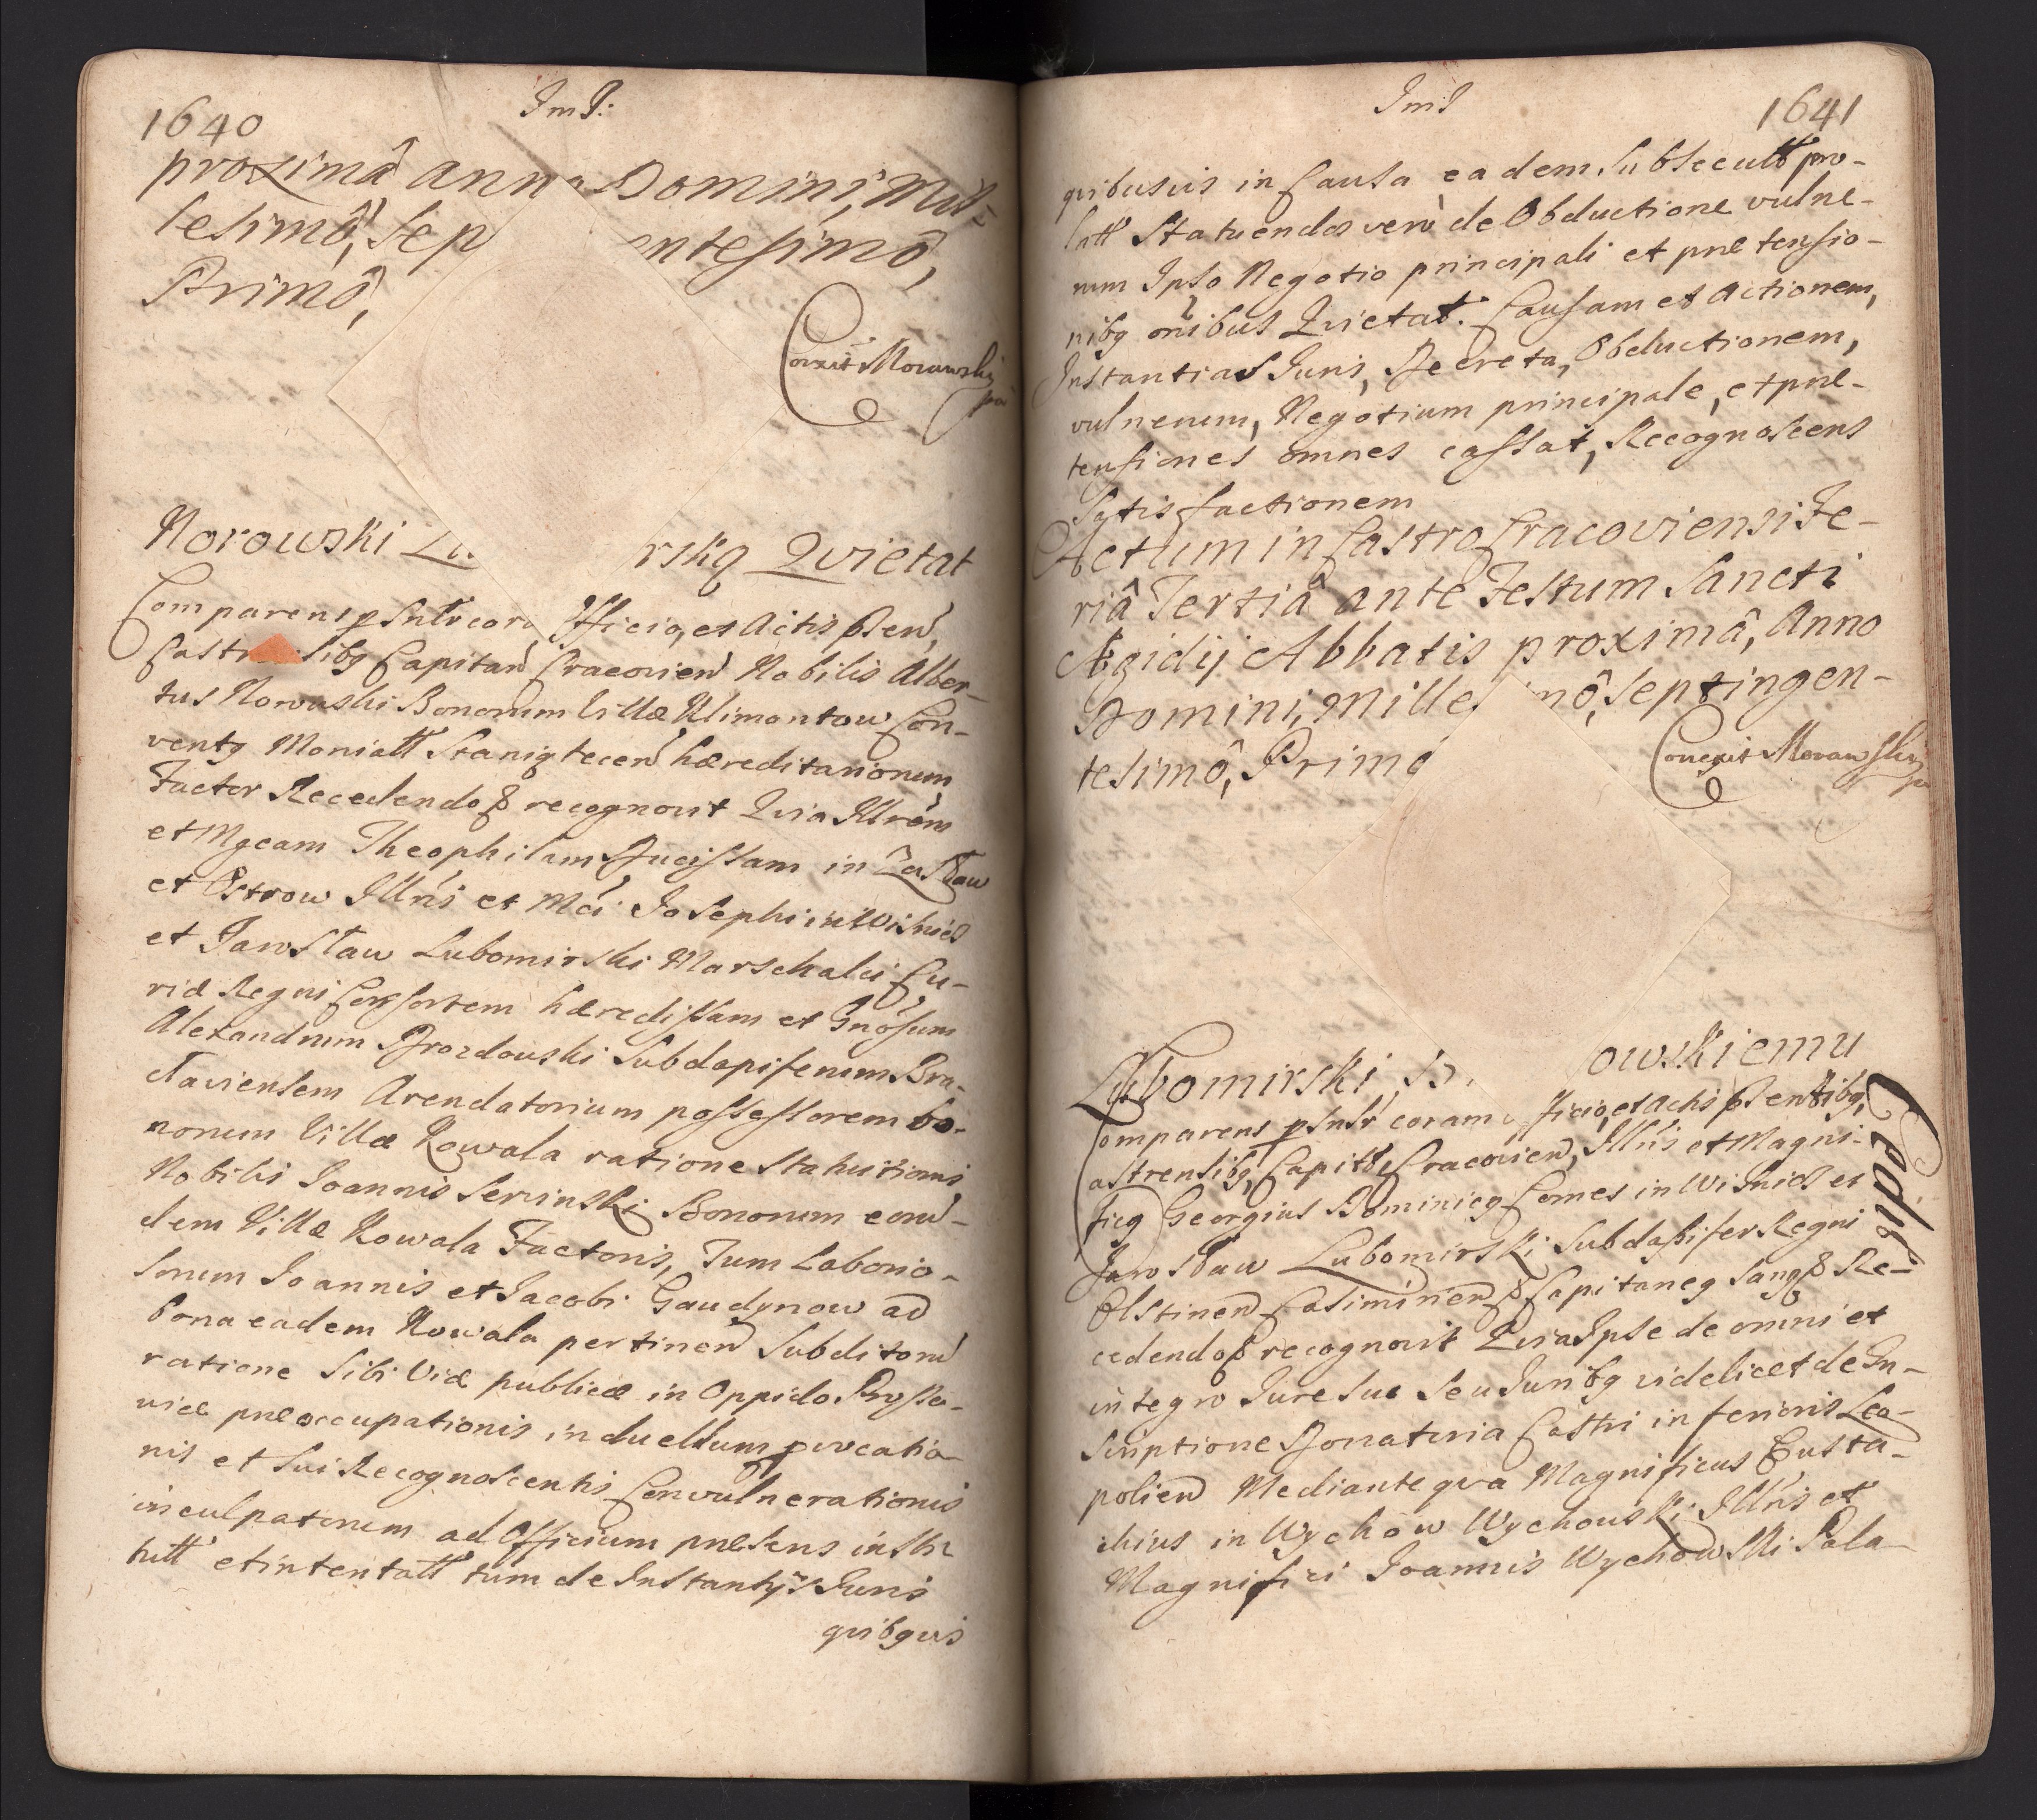 1640
ImP:
proximâ ann Domini, Mil-
lesimô, Sep entesimô,
Primô,
Correxit Morawski
Norowski Lu rską Qvietat
Comparens psnltr cor Officio, et Actis pñen,
Castr libq Capitan Cracovien Nobilis Alber-
tus Norowski Bonorum Villæ Klimontow Con-
ventq Moniall Staniątecen hæreditariorum
Factor Recedendo &c recognovit Qvia Illrem
et Mgcam Theophilam Ducissam in Zasław
et Ostrow Illris et Mci Josephi in Wisnicz
et Jarosław Lubomirski Marschalci Cu-
riæ Regni Consortem hæredissam et Gnosum
Alexandrum Drozdowski Subdapiferum Bra-
cłaviensem Arendatorium possessorem bo-
norum Villæ Kowala ratione Statuitionis
Nobilis Joannis Serwinski Bonorum eorun-
dem Villæ Kowala Factoris, Tum Laborio-
sorum Joannis et Jacobi Gaudynow ad
bona eadem Kowala pertinen Subditorum
ratione Sibi Viæ publicæ in Oppido Prosso-
vice præoccupationis, in duellum provocatio-
nis et Sui Recognoscentis Convulnerationis
inculpatorum ad Officium præsens insti-
tutt et intentatt tum de Instantijs Juris
qvibqvis
ImP
1641
qvibusvis in Causa eadem Subsecutt pro-
latt Statuendos vero de Obductione vulne-
rum Ipso Negotio principali et prætensio-
nibq omibus Qvietat. Causam et Actionem,
Instantias Juris, Decreta, Obductionem,
vulnerum, Negotium principale, et præ-
tensiones omnes cassat, Recognoscens
Satisfactionem
Actum in Castro Cracoviensi Fe-
riâ Tertiâ ante Festum Sancti
Ægidij Abbatis proximâ, Anno
Domini, Mille mô, Septingen-
tesimô, Primo
Correxit Morawski
Lubomirski, owskiemu
Cedit
Comparens psnltr coram fficio, et Actis pñentibq,
Castrensibq, Capitt, Cracovien, Illris et Magni-
ficq Georgius Dominicq Comes in Wisnicz et
Jarosław Lubomirski Subdapifer Regni
Olstinen Casimirien &c Capitaneq Sanq &c Re-
cedendo &c recognovit Qvia Ipse de omni et
integro Jure Suo Seu Juribq videlicet de In-
scriptione Donatoria Castri inferioris Leo-
polien Mediante qva Magnificus Eusta-
chius in Wychow Wychowski Illris et
Magnifici Joannis Wychowski Pala-